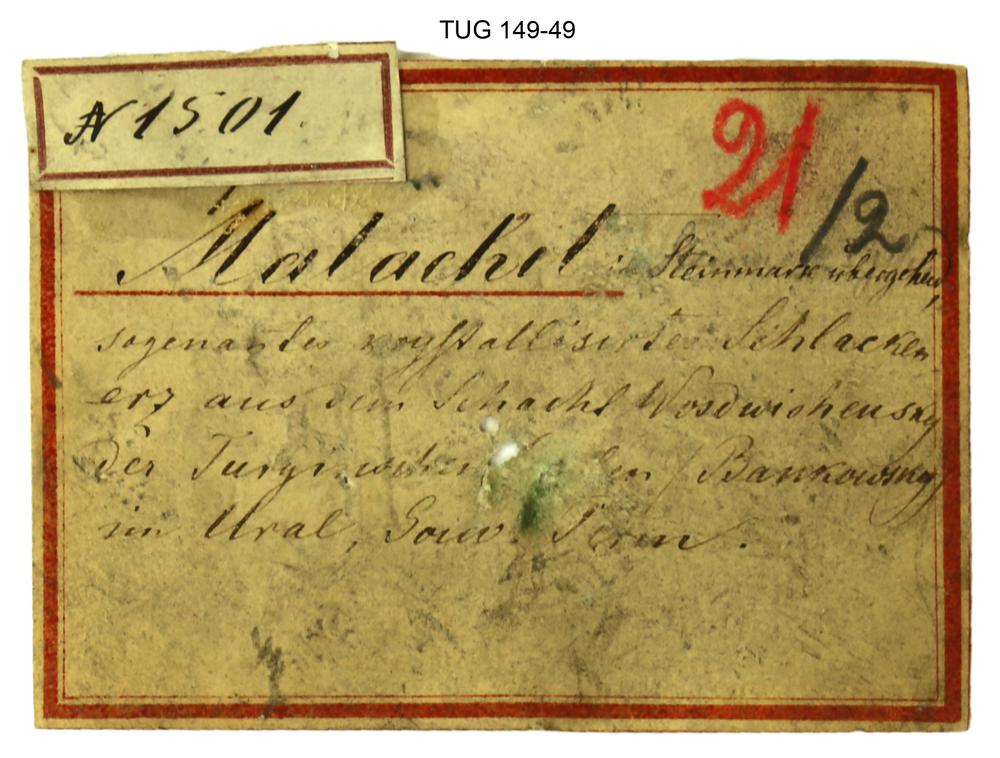 TUG 149-49
N 1501.
21/2
Malachit in Steinmark übergehend,
sogenantes krystallisirtes Schlacken
erz aus dem Schacht Wosdwishensky
der Turginschen (Bankowsky)
im Ural, Gouv. Perm.